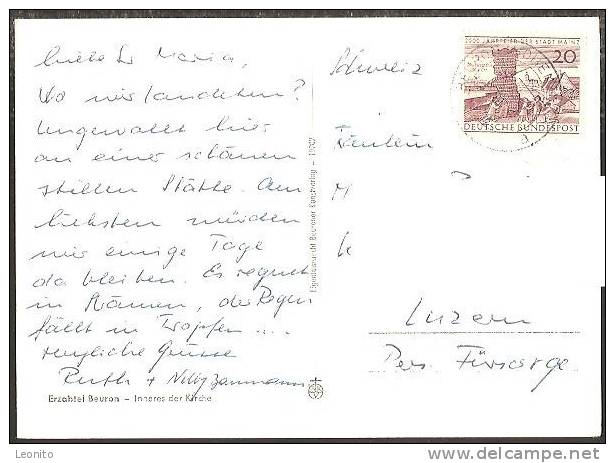 Liebe Sr Maria,
Wo wir landeten?
Ungewollt hier
an einer schönen
stillen Stätte. Am
liebsten würden
wir einige Tage
da bleiben. Es regnet
in Strömen, der Regen
fällt in Tropfen ....
herzliche Grüsse
Ruth + Nelly
Erzabtei Beuron – Inneres der Kirche
Beuroner Kunstverlag
2000 JAHRFEIER DER STADT MAINZ
20
DEUTSCHE BUNDESPOST
Schweiz
Fräulein
M
K
Luzern
Pers. Fürsorge
Leonito
www.delcampe.net